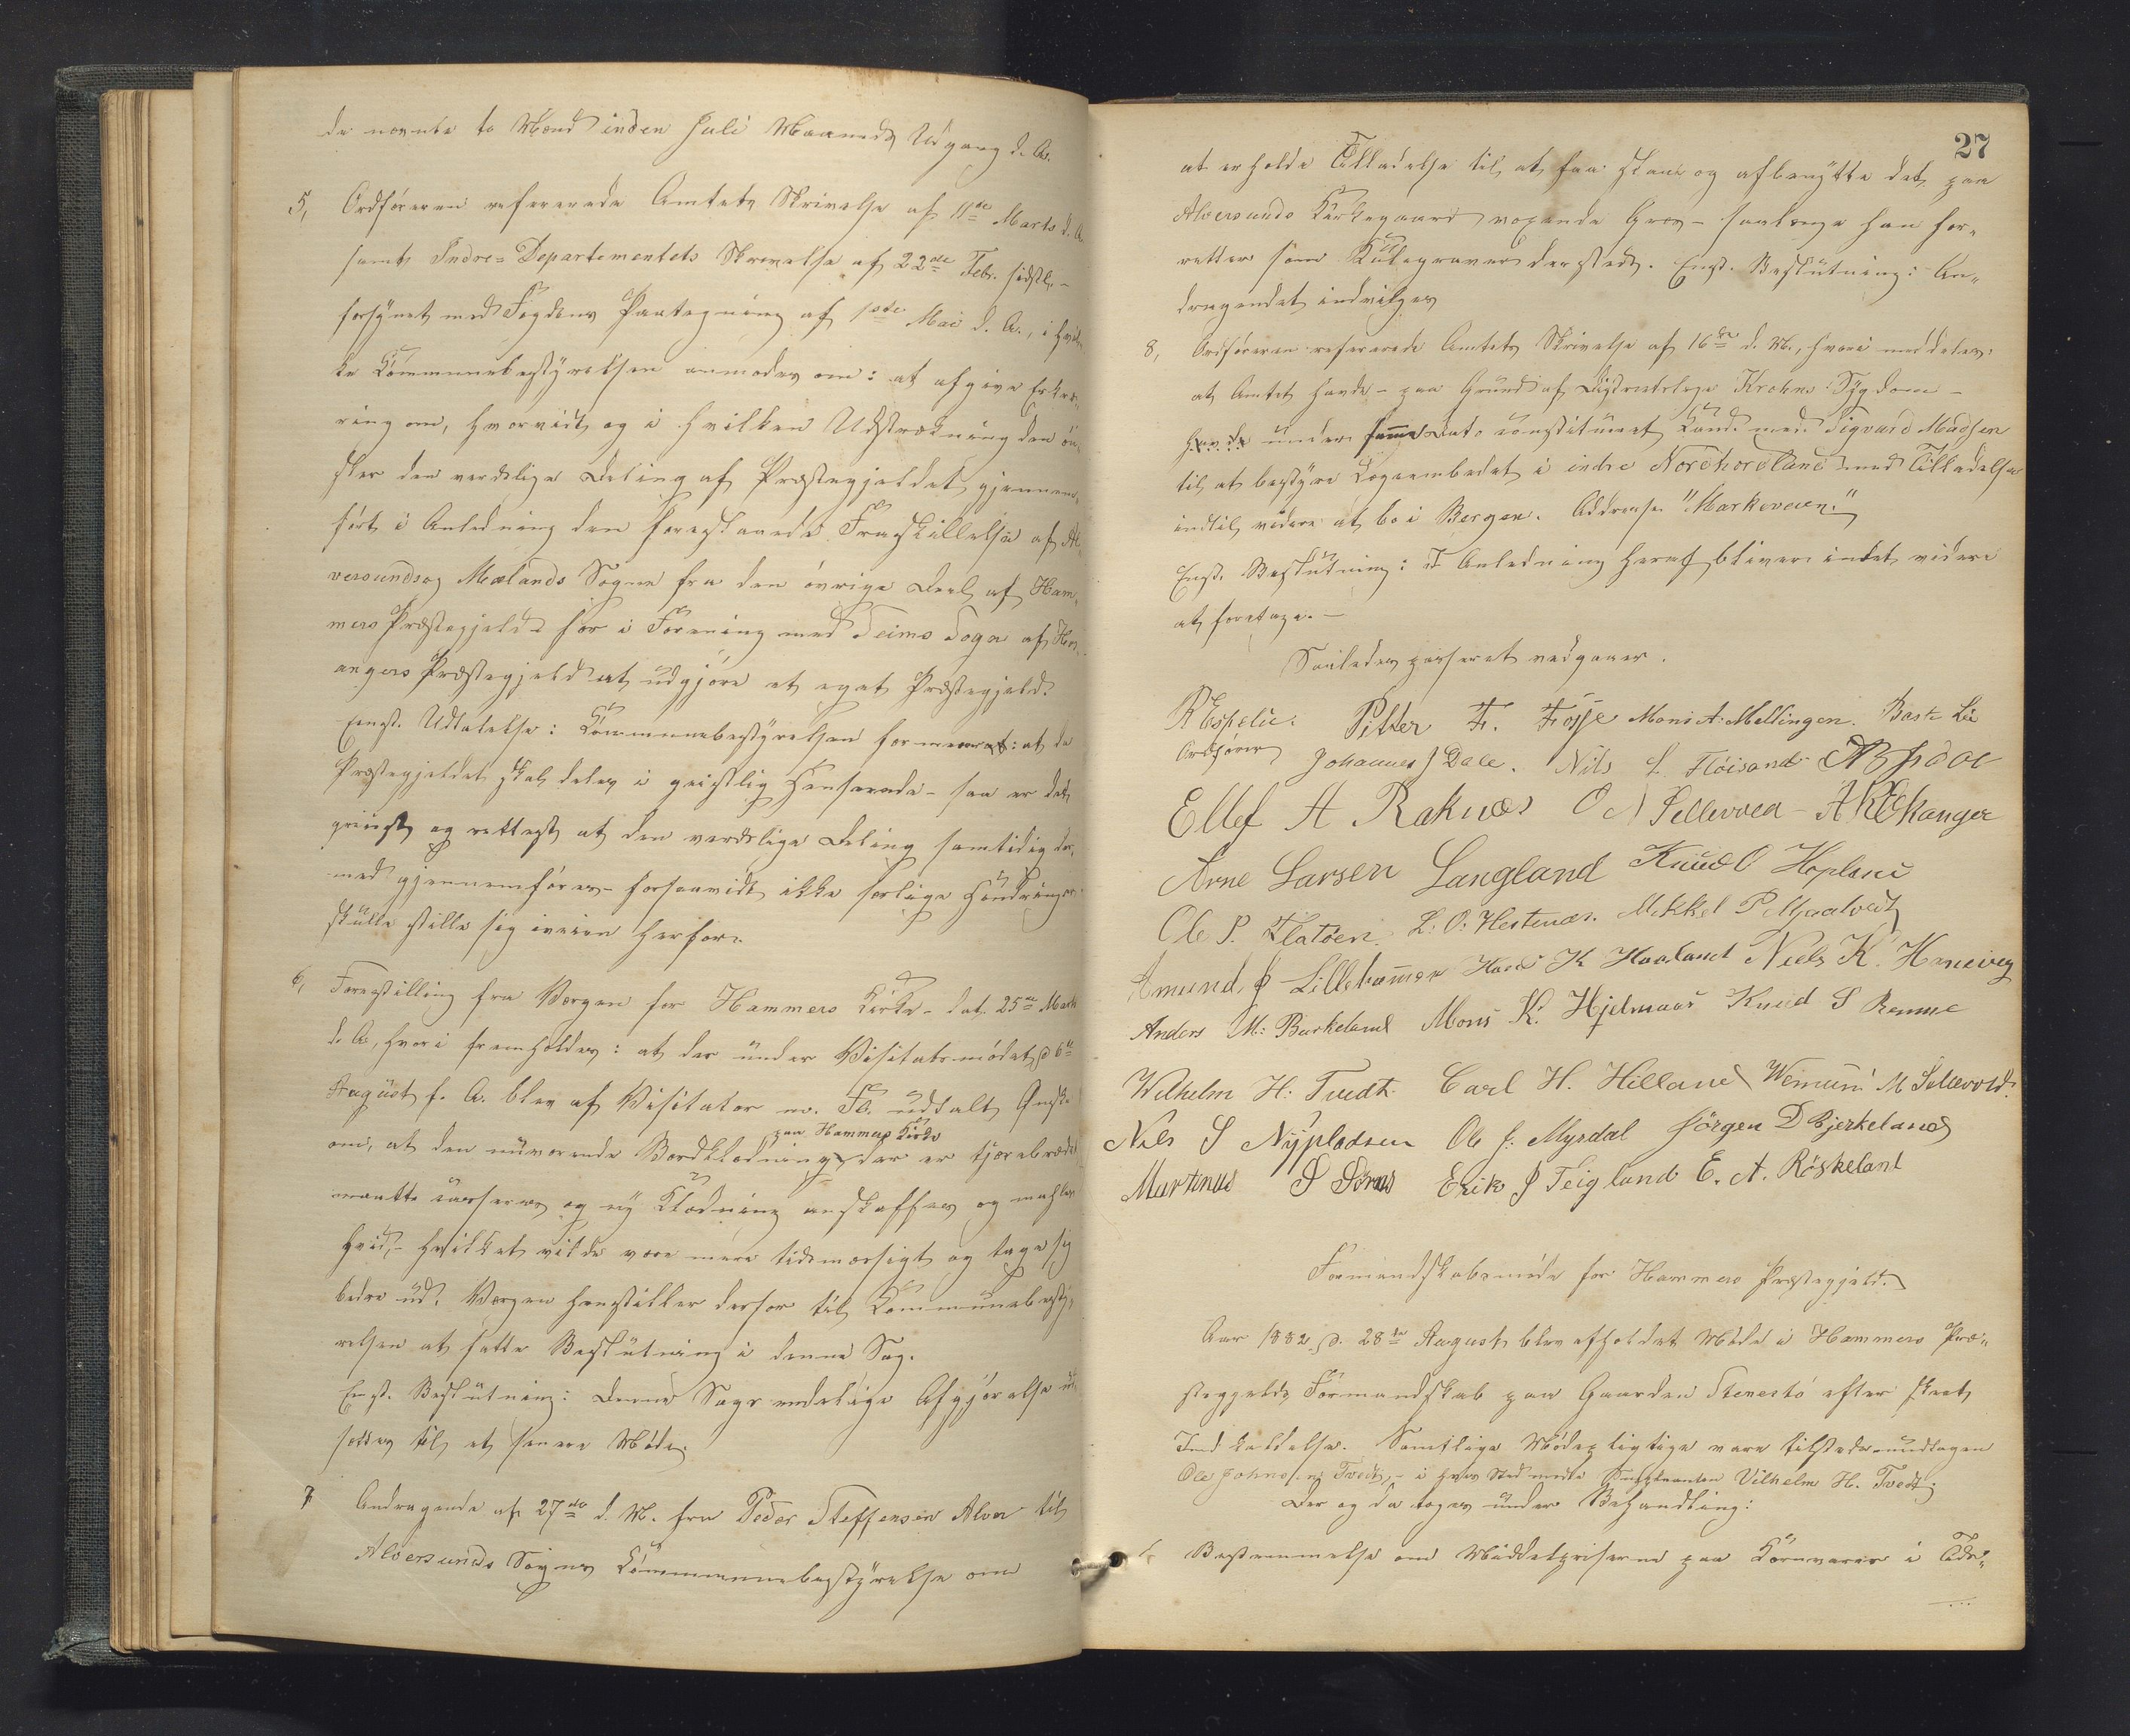 de nævnte to Mænd inden Juli Maaneds Udgang d. A.
5, Ordføreren refererede Amtets Skrivelse af 11te Marts d. A.
samt Indre-Departementets Skrivelse af 22de Febr. sidstl. -
forsynet med Fogdens Paategning af 1ste Mai d. A., i hvil-
ke Kommunebestyrelsen anmodes om: at afgive Erklæ-
ring om, hvorvidt og i hvilken Udstrækning den øn-
sker den verdslige Deling af Præstegjeldet gjennem-
ført i Anledning den forestaaende Fraskillelse af Al-
versunds og Mælands Sogne fra den øvrige Deel af Ham-
mers Præstegjeld for i Forening med Seims Sogn af Hos-
angers Præstegjeld at udgjøre et eget Præstegjeld.
Eenst. Udtalelse: Kommunebestyrelsen formener: at da
Præstegjeldet skal deles i geistlig Henseende - saa er det
greiest og rettest at den verdslige Deling samtidig der-
med gjennemføres - forsaavidt ikke særlige Hindringer
skulle stille sig iveien herfor.
6, Forestilling fra Værgen for Hammers Kirke - dat. 25de Marts
d. A., hvori fremholdes: at der under Visitatsmødet d 6te
August f. A. blev af Visitator m. Fl. udtalt Ønske
paa Hammers Kirke
om, at den nuværende Bordklædning der er tjærebrædt
maatte casseres og ny Klædning anskaffes og mahles
hvid, - hvilket vilde være mere tidsmæssigt og tage sig
bedre ud. Værgen henstiller derfor til Kommunebesty-
relsen at fatte Beslutning i denne Sag.
Enst. Beslutning: Denne Sags endelige Afgjørelse ud-
sættes til et senere Møde.
7 Andragende af 27de d. M. fra Peder Steffensen Alver til
Alversunds Sogns Kommunebestyrelse om
27
at erholde Tilladelse til at faa slaae og afbenytte det paa
Alversunds Kirkegaard voxende Græs - saalænge han for-
retter som Kulegraver dersteds. Enst. Beslutning: An-
dragendet indvilges
8, Ordføreren refererede Amtets Skrivelse af 16de d. M., hvori meddeles:
at Amtet havde - paa Grund af Distriktslæge Krohns Sygdom -
havde under samme Dato constitueret Cand. med. Sigvard Madsen
til at bestyre Lægeembedet i indre Nordhordland med Tilladelse
indtil videre at bo i Bergen. Addresse "Markeveien."
Enst. Beslutning: I Anledning heraf bliver intet videre
at foretage. -
Saaledes passeret vedgaaes.
R Espelie. Pitter F. Fosse Mons A. Mellingen. Bast. Lie
Ordfører Johannes J Dale. Nils L. Fløisand
Ellef A Raknæs O N Sellevold A K Ekanger
Arne Larsen Langland Knud O Hopland
Ole P. Flatøen. L. O. Hestenæs. Mikkel P Mjaatvedt
Amund J Lillehammer K Haaland Niels K.
Anders M: Burkeland Mons K. Hjelmaas Knud S Remme
Wilhelm H: Tvedt. Carl H. Hilland M Sellevold.
Nils S Ole J. Myrdal Jörgen D Bjerkeland
Martinus Erik J Teigland E. A. Röskeland
Formandskabsmøde for Hammers Præstegjeld.
Aar 1882 d. 28de August blev afholdet Møde i Hammers Præ-
stegjelds Formandskab paa Gaarden Stenestø efter skeet
Indkaldelse. Samtlige Mødepligtige vare tilstede - undtagen
Ole Johnsen Tvedt, - i hvis Sted mødte Suppleanten Vilhelm H. Tvedt.
Der og da toges under Behandling:
1, Bestemmelse om Middelpriserne paa Kornvarer i Tids-